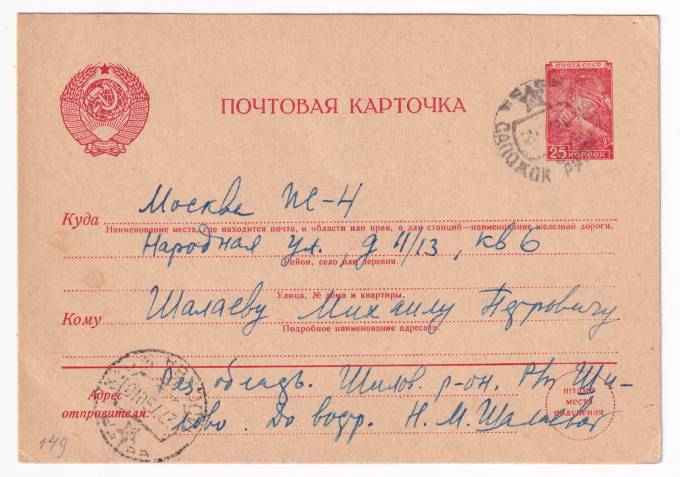 ПОЧТОВАЯ КАРТОЧКА
ПОЧТА СССР
25 КОПЕЕК
САПОЖОК РЯЗ
Куда Москва Ж-4
Наименование места, где находится почта, и области или края, а для станций—наименование железной дороги.
Народная ул., д 11/13, кв 6
Район, село или деревня.
Улица, № дома и квартиры.
Кому Шалаеву Михаилу Петровичу
Подробное наименование адресата.
Адрес отправителя:
Ряз область. Шилов. р-он. Рп Ши-
лово. До востр. Н. М. Шалаевой
ШТАМП
МЕСТА
ПОЛУЧЕНИЯ
149